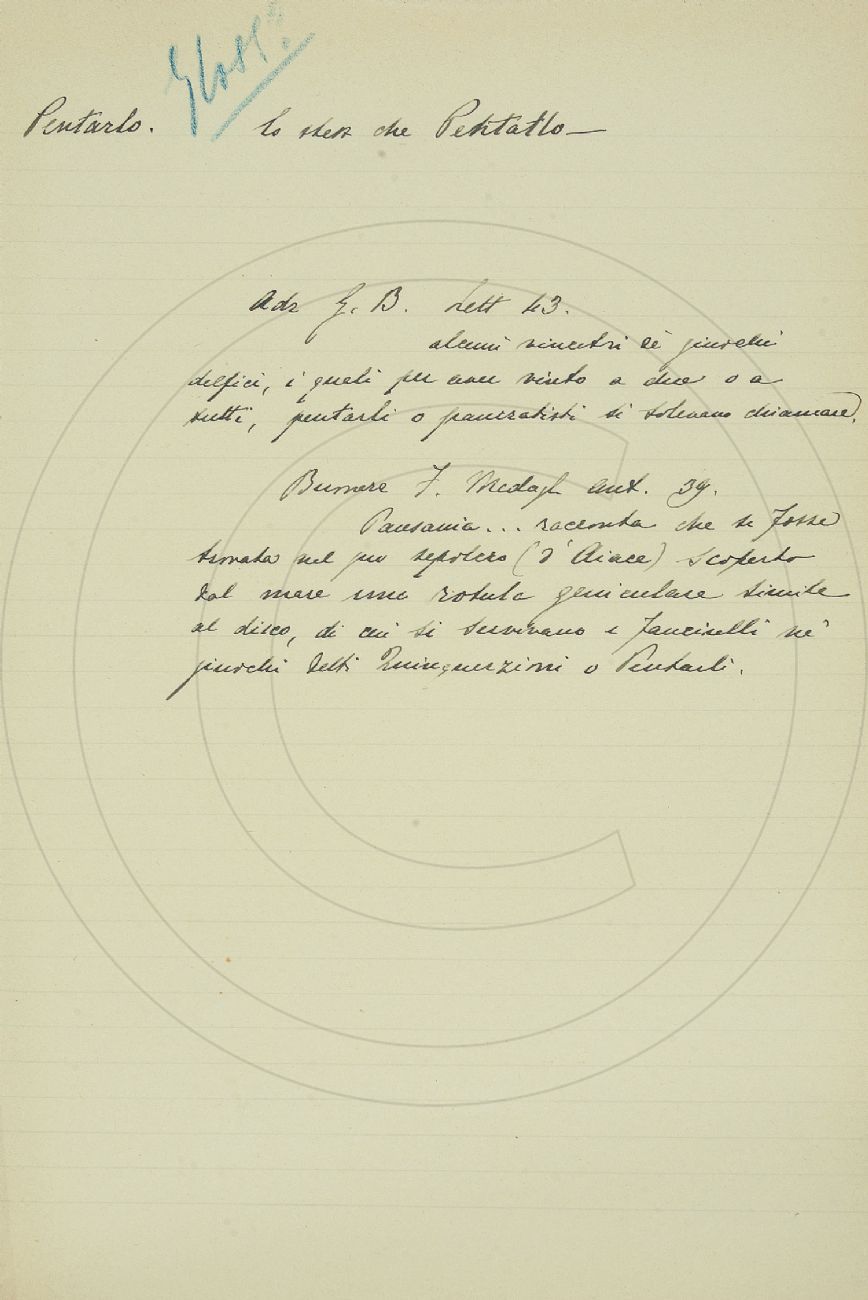 Gloss:
Pentarlo. lo stess che Pentatlo—
Adr G. B. Lett 43.
alcuni vincitri de' giuochi
delfici, i quali per aver vinto a due o a
tutti, pentarli o pancratisti si solevano chiamare.
F. Medagl ant. 39.
Pausania... racconta che si fosse
trovata nel suo sepolcro (d'Aiace) scoperto
dal mare una rotula geniculare simile
al disco, di cui si servivano i fanciulli ne'
giuochi detti Quinquerzioni o Pentarli.